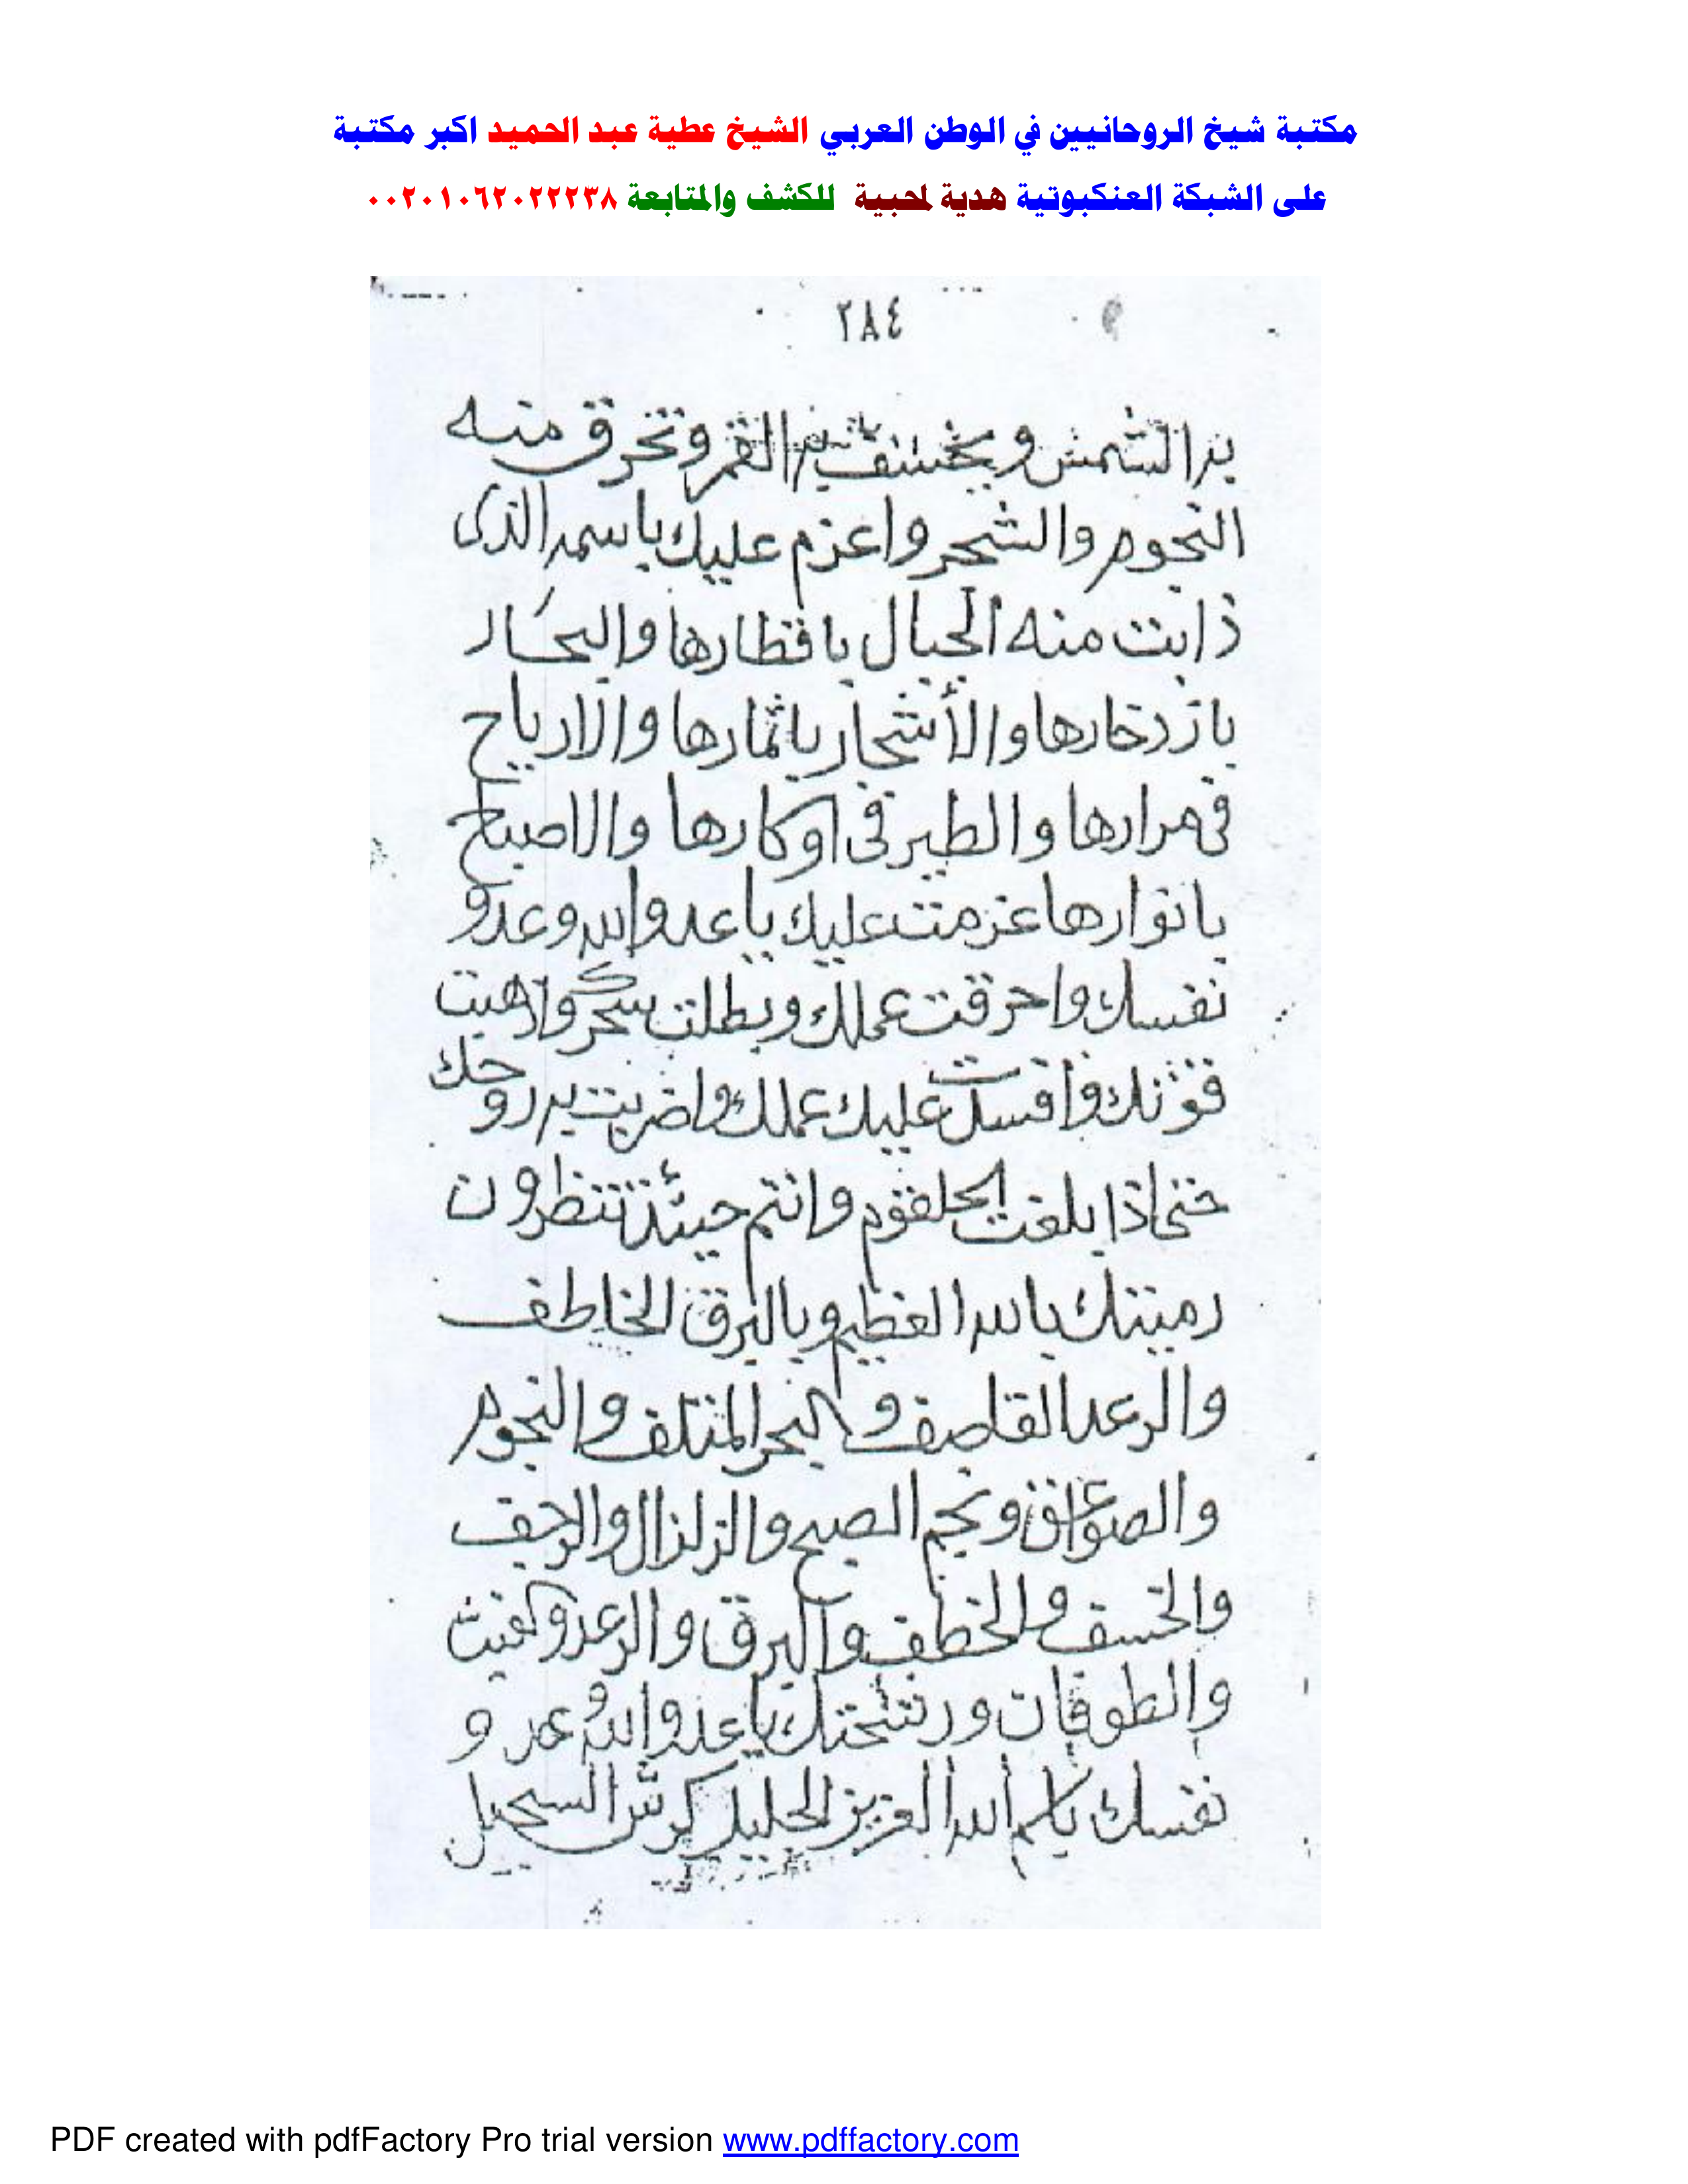 مكتبة شيخ الروحانيين في الوطن العربي الشيخ عطية عبد الحميد اكبر مكتبة
على الشبكة العنكبوتية هدية لمحبية للكشف والمتابعة ٠٠٢٠١٠٦٢٠٢٢٢٣٨
٢٨٤
به الشمس ويخسف به القمر وتحرق منه
النجوم والشجر واعزم عليك باسمه الذى
ذابت منه الجبال باقطارها والبحار
بازدخارها والأشجار باثمارها والارياح
فى مرارها والطير فى اوكارها والاصباح
بانوارها عزمت عليك ياعدوالله وعدو
نفسك واحرقت عملك وبطلت سحرك واذهبت
قوتك وافسدت عليك عملك واضربت به روحك
حتى اذا بلغت الحلقوم وانتم حينئذ تنظرون
رميتك بالله العظيم وبالبرق الخاطف
والرعد القاصف والبحر المتلف والنجوم
والصواعق ونجم الصبح والزلزال والرجف
والخسف والخطف والبرق والرعد
والطوفان ياعدوالله عدو
نفسك الله العزيز الجليل السجيل
PDF created with pdfFactory Pro trial version www.pdffactory.com